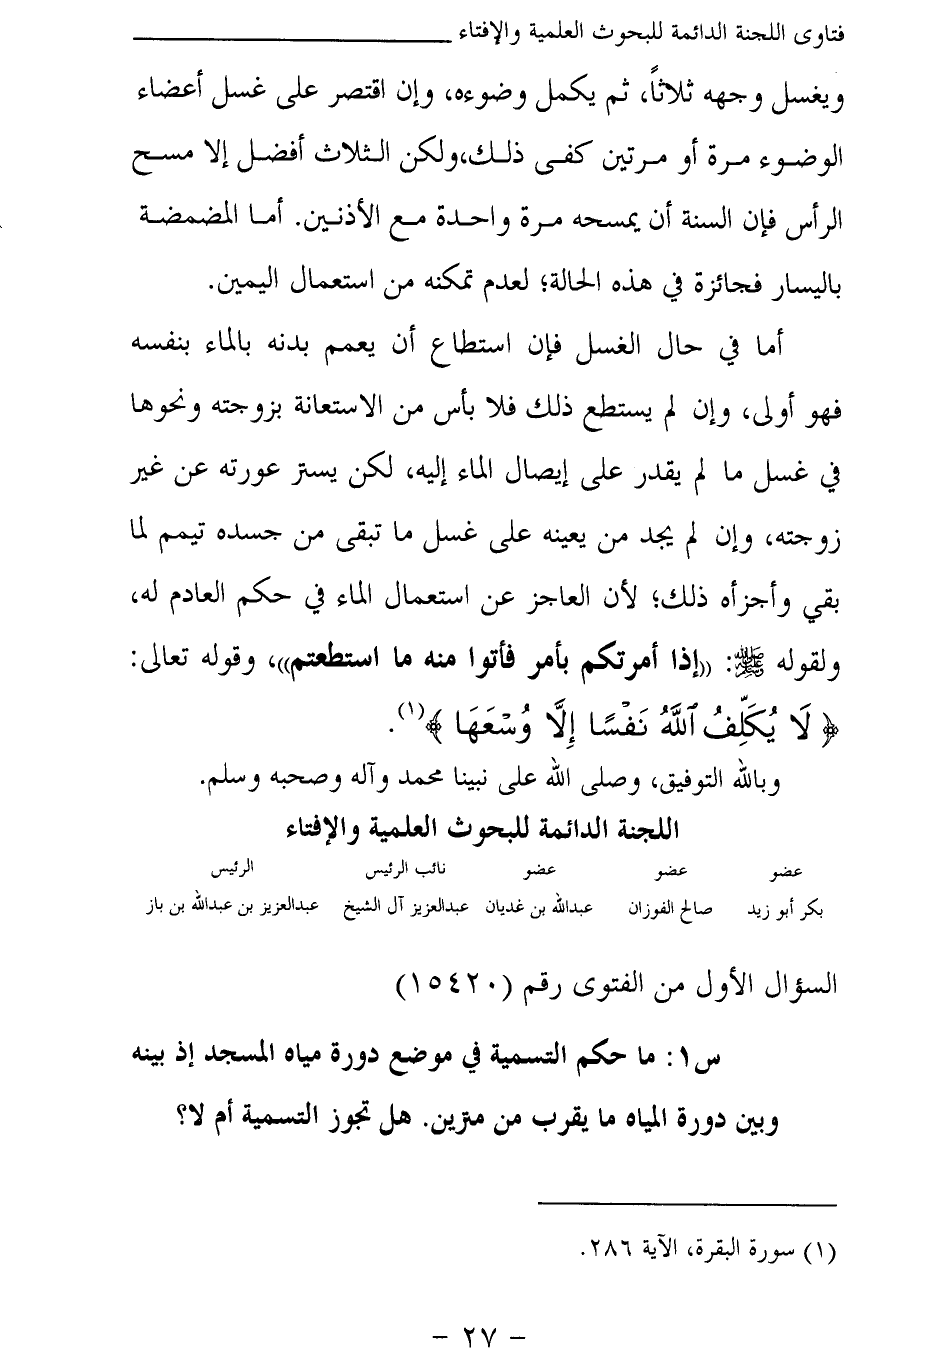 فتاوى اللجنة الدائمة للبحوث العلمية والإفتاء
ويغسل وجهه ثلاثاً، ثم يكمل وضوءه، وإن اقتصر على غسل أعضاء
الوضوء مرة أو مرتين كفى ذلك،ولكن الثلاث أفضل إلا مسح
الرأس فإن السنة أن يمسحه مرة واحدة مع الأذنين. أما المضمضة
باليسار فجائزة في هذه الحالة؛ لعدم تمكنه من استعمال اليمين.
أما في حال الغسل فإن استطاع أن يعمم بدنه بالماء بنفسه
فهو أولى، وإن لم يستطع ذلك فلا بأس من الاستعانة بزوجته ونحوها
في غسل ما لم يقدر على إيصال الماء إليه، لكن يستر عورته عن غير
زوجته، وإن لم يجد من يعينه على غسل ما تبقى من جسده تيمم لما
بقي وأجزأه ذلك؛ لأن العاجز عن استعمال الماء في حكم العادم له،
ولقوله ﷺ: ((إذا أمرتكم بأمر فأتوا منه ما استطعتم))، وقوله تعالى:
﴿ لَا يُكَلِّفُ ٱللَّهُ نَفْسًا إِلَّا وُسْعَهَا ﴾(١).
وبالله التوفيق، وصلى الله على نبينا محمد وآله وصحبه وسلم.
اللجنة الدائمة للبحوث العلمية والإفتاء
عضو عضو عضو نائب الرئيس الرئيس
بكر أبو زيد صالح الفوزان عبدالله بن غديان عبدالعزيز آل الشيخ عبدالعزيز بن عبدالله بن باز
السؤال الأول من الفتوى رقم (١٥٤٢٠)
س١: ما حكم التسمية في موضع دورة مياه المسجد إذ بينه
وبين دورة المياه ما يقرب من مترين. هل تجوز التسمية أم لا؟
(١) سورة البقرة، الآية ٢٨٦.
- ٢٧ -